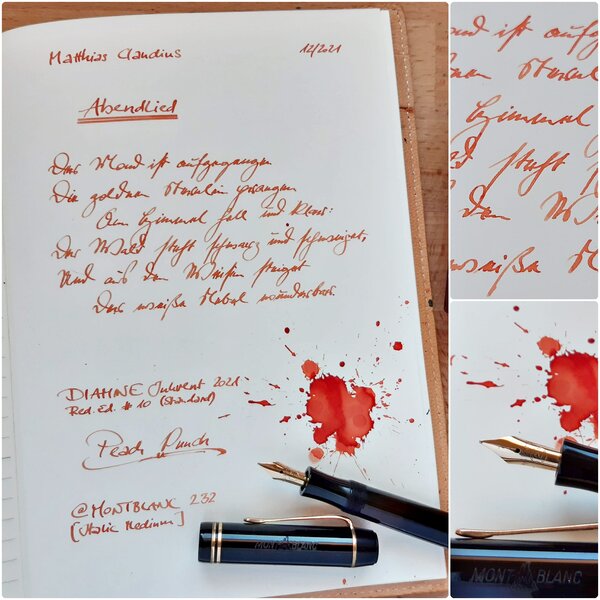 Matthias Claudius
12/2021
Abendlied
Der Mond ist aufgegangen
Die goldnen Sternlein prangen
Am Himmel hell und klar:
Der Wald steht schwarz und schweiget,
Und aus den Wiesen steiget
Der weiße Nebel wunderbar.
DIAMINE Inkvent 2021
Red. Ed. # 10 (Standard)
Peach Punch
@MONTBLANC 232
[Italic Medium]
MONTBLANC
Mond ist
Himmel
steht
den
weiße
MONT BLANC